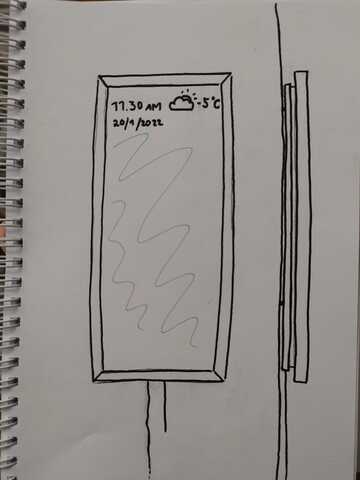 11.30 AM -5°C
20/1/2022